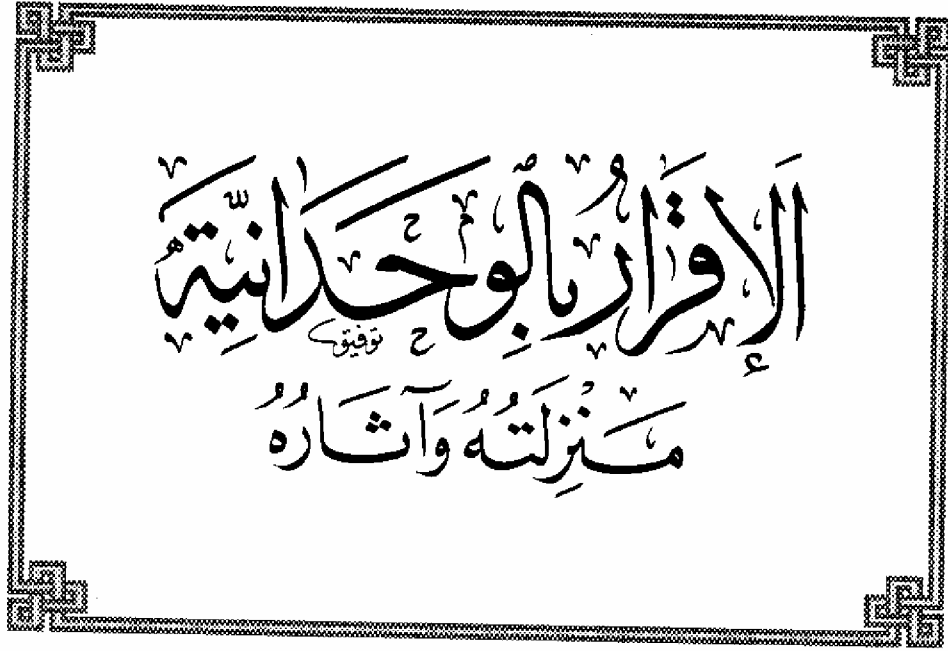 اَلْإِقْرَارُ بِالْوَحْدَانِيَّةِ
توفيق
مَنْزِلَتُهُ وَآثَارُهُ